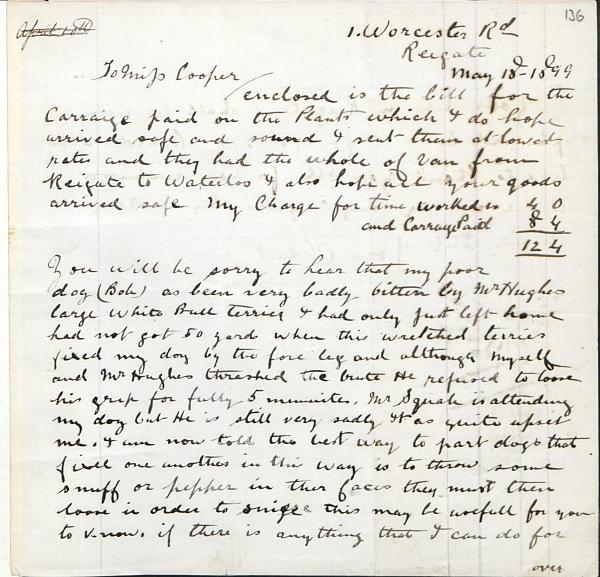 136
April 10th
1. Worcester Rd
Reigate
May 18- 1899
To Miss Cooper
enclosed is the bill for the
Carraige paid on the Plants which I do hope
arrived safe and sound I sent them at lowest
rates and they had the whole of Van from
Reigate to Waterloo I also hope all your goods
arrived safe My Charge for time worked is 4 0
and Carrage Paid 8 4
12 4
You will be sorry to hear that my poor
dog (Bob) as been very badly bitten by Mr Hughes
large White Bull terrier I had only just left home
had not got 50 yard when this wretched terrier
fixed my dog by the fore leg and although myself
and Mr Hughes thrashed the brute He refused to loose
his grip for fully 5 minuites. Mr is attending
my dog but He is still very sadly It as quite upset
me. I am now told the best way to part dogs that
fixed one anothes in this way is to throw some
snuff or pepper in ther faces they must then
loose in order to this may be usefull for you
to know. if there is anything that I can do for
over